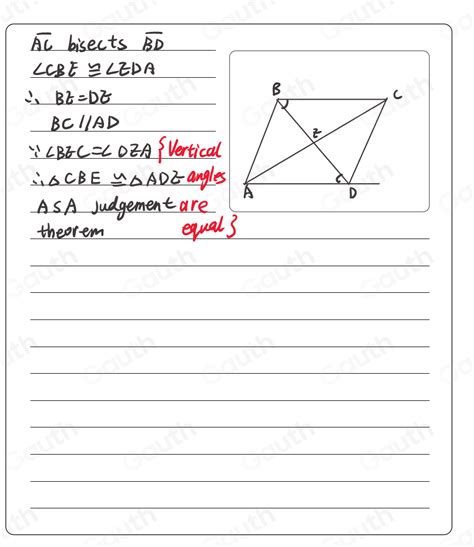 AC bisects BD
∠CBE ≅ ∠EDA
∴ BE=DE
BC//AD
∵ ∠BEC=∠DEA {Vertical
∴ △CBE ≅ △ADE angles
ASA judgement are
theorem equal}
B
C
E
A
D